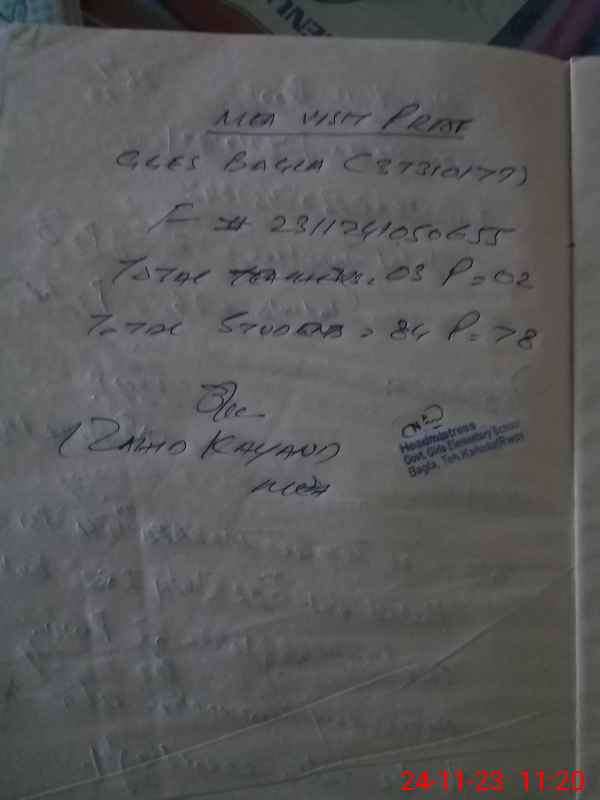 MEA VISIT PROF
GGES BAGLA (37310177)
F # 2311241050655
TOTAL TEACHERS = 03 P = 02
TOTAL STUDENTS = 84 P = 78
(ZAHID KAYANI)
MEA
Headmistress
Govt. Girls Elementary School
Bagla, Teh.
24-11-23 11:20